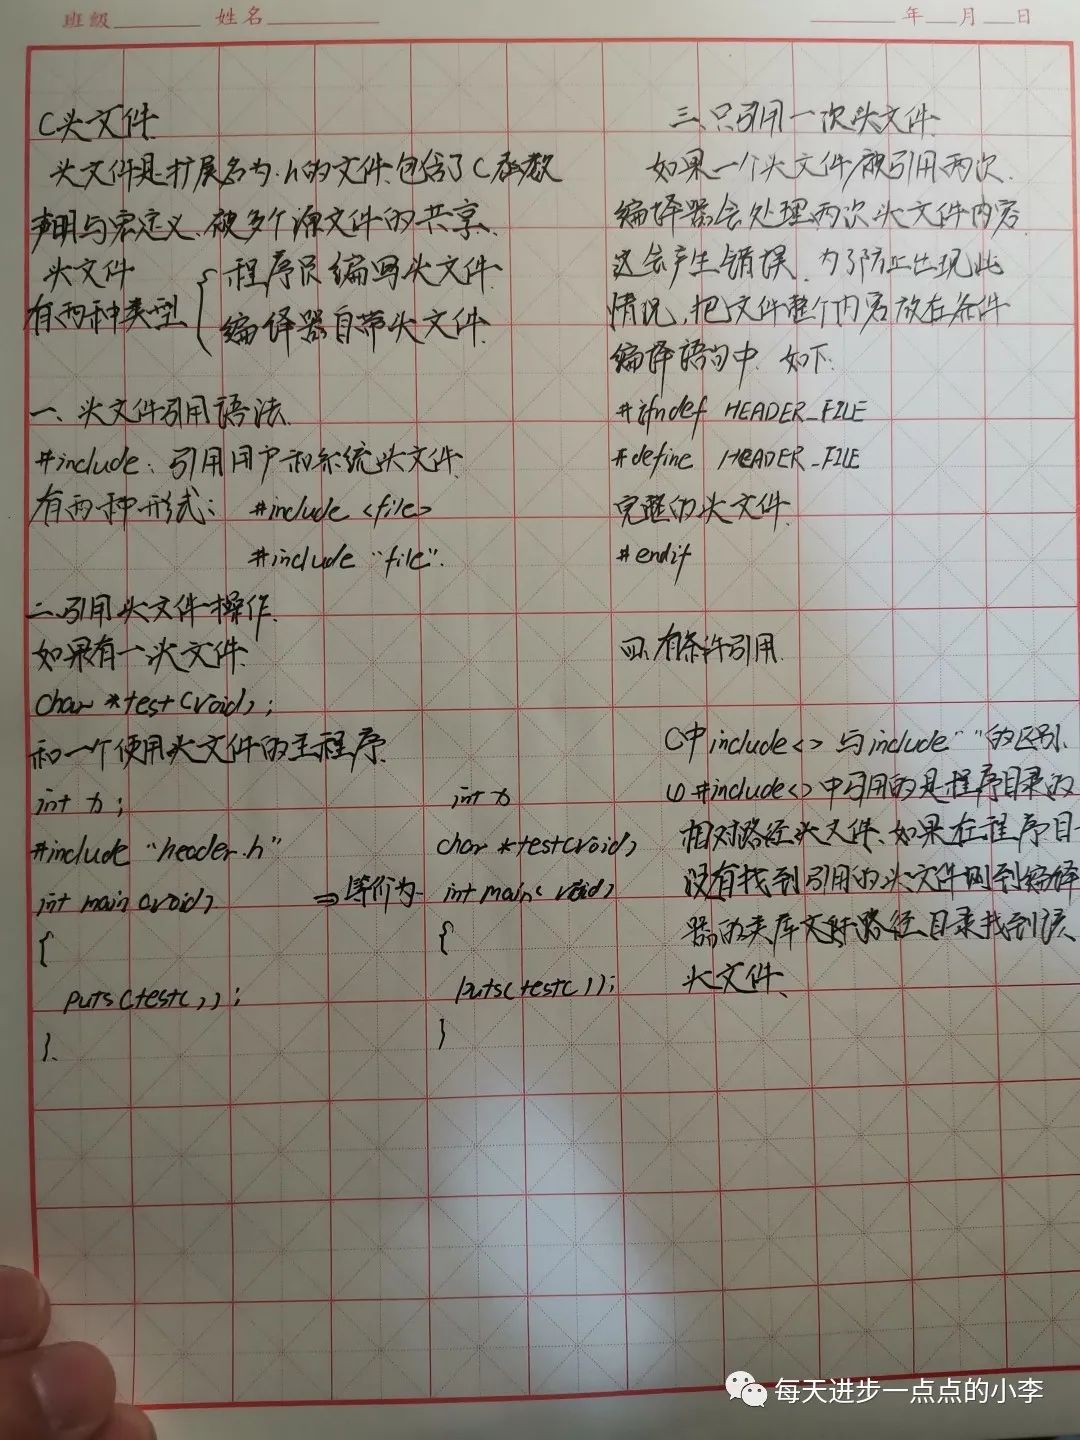 班级 姓名 年 月 日
C头文件
头文件是扩展名为.h的文件,包含了C函数
声明与宏定义,被多个源文件的共享.
头文件
有两种类型
程序员编写头文件
编译器自带头文件
一、头文件引用语法
#include: 引用用户和系统头文件
有两种形式: #include <file>
#include "file".
二.引用头文件操作
如果有一头文件
char *test (void);
和一个使用头文件的主程序
int x;
#include "header.h"
int main (void)
{
puts(test());
}.
⇒等价为
int x
char *test(void)
int main(void)
{
puts(test());
}
三、只引用一次头文件
如果一个头文件被引用两次,
编译器会处理两次头文件内容
这会产生错误,为了防止出现此
情况,把文件整个内容放在条件
编译语句中. 如下:
#ifndef HEADER_FILE
#define HEADER_FILE
完整的头文件
#endif
四、有条件引用
C中include<>与include""的区别.
(1) #include<>中引用的是程序目录的
相对路径头文件,如果在程序目
没有找到引用的头文件则到编译
器的类库文件路径目录找到该
头文件、
每天进步一点点的小李